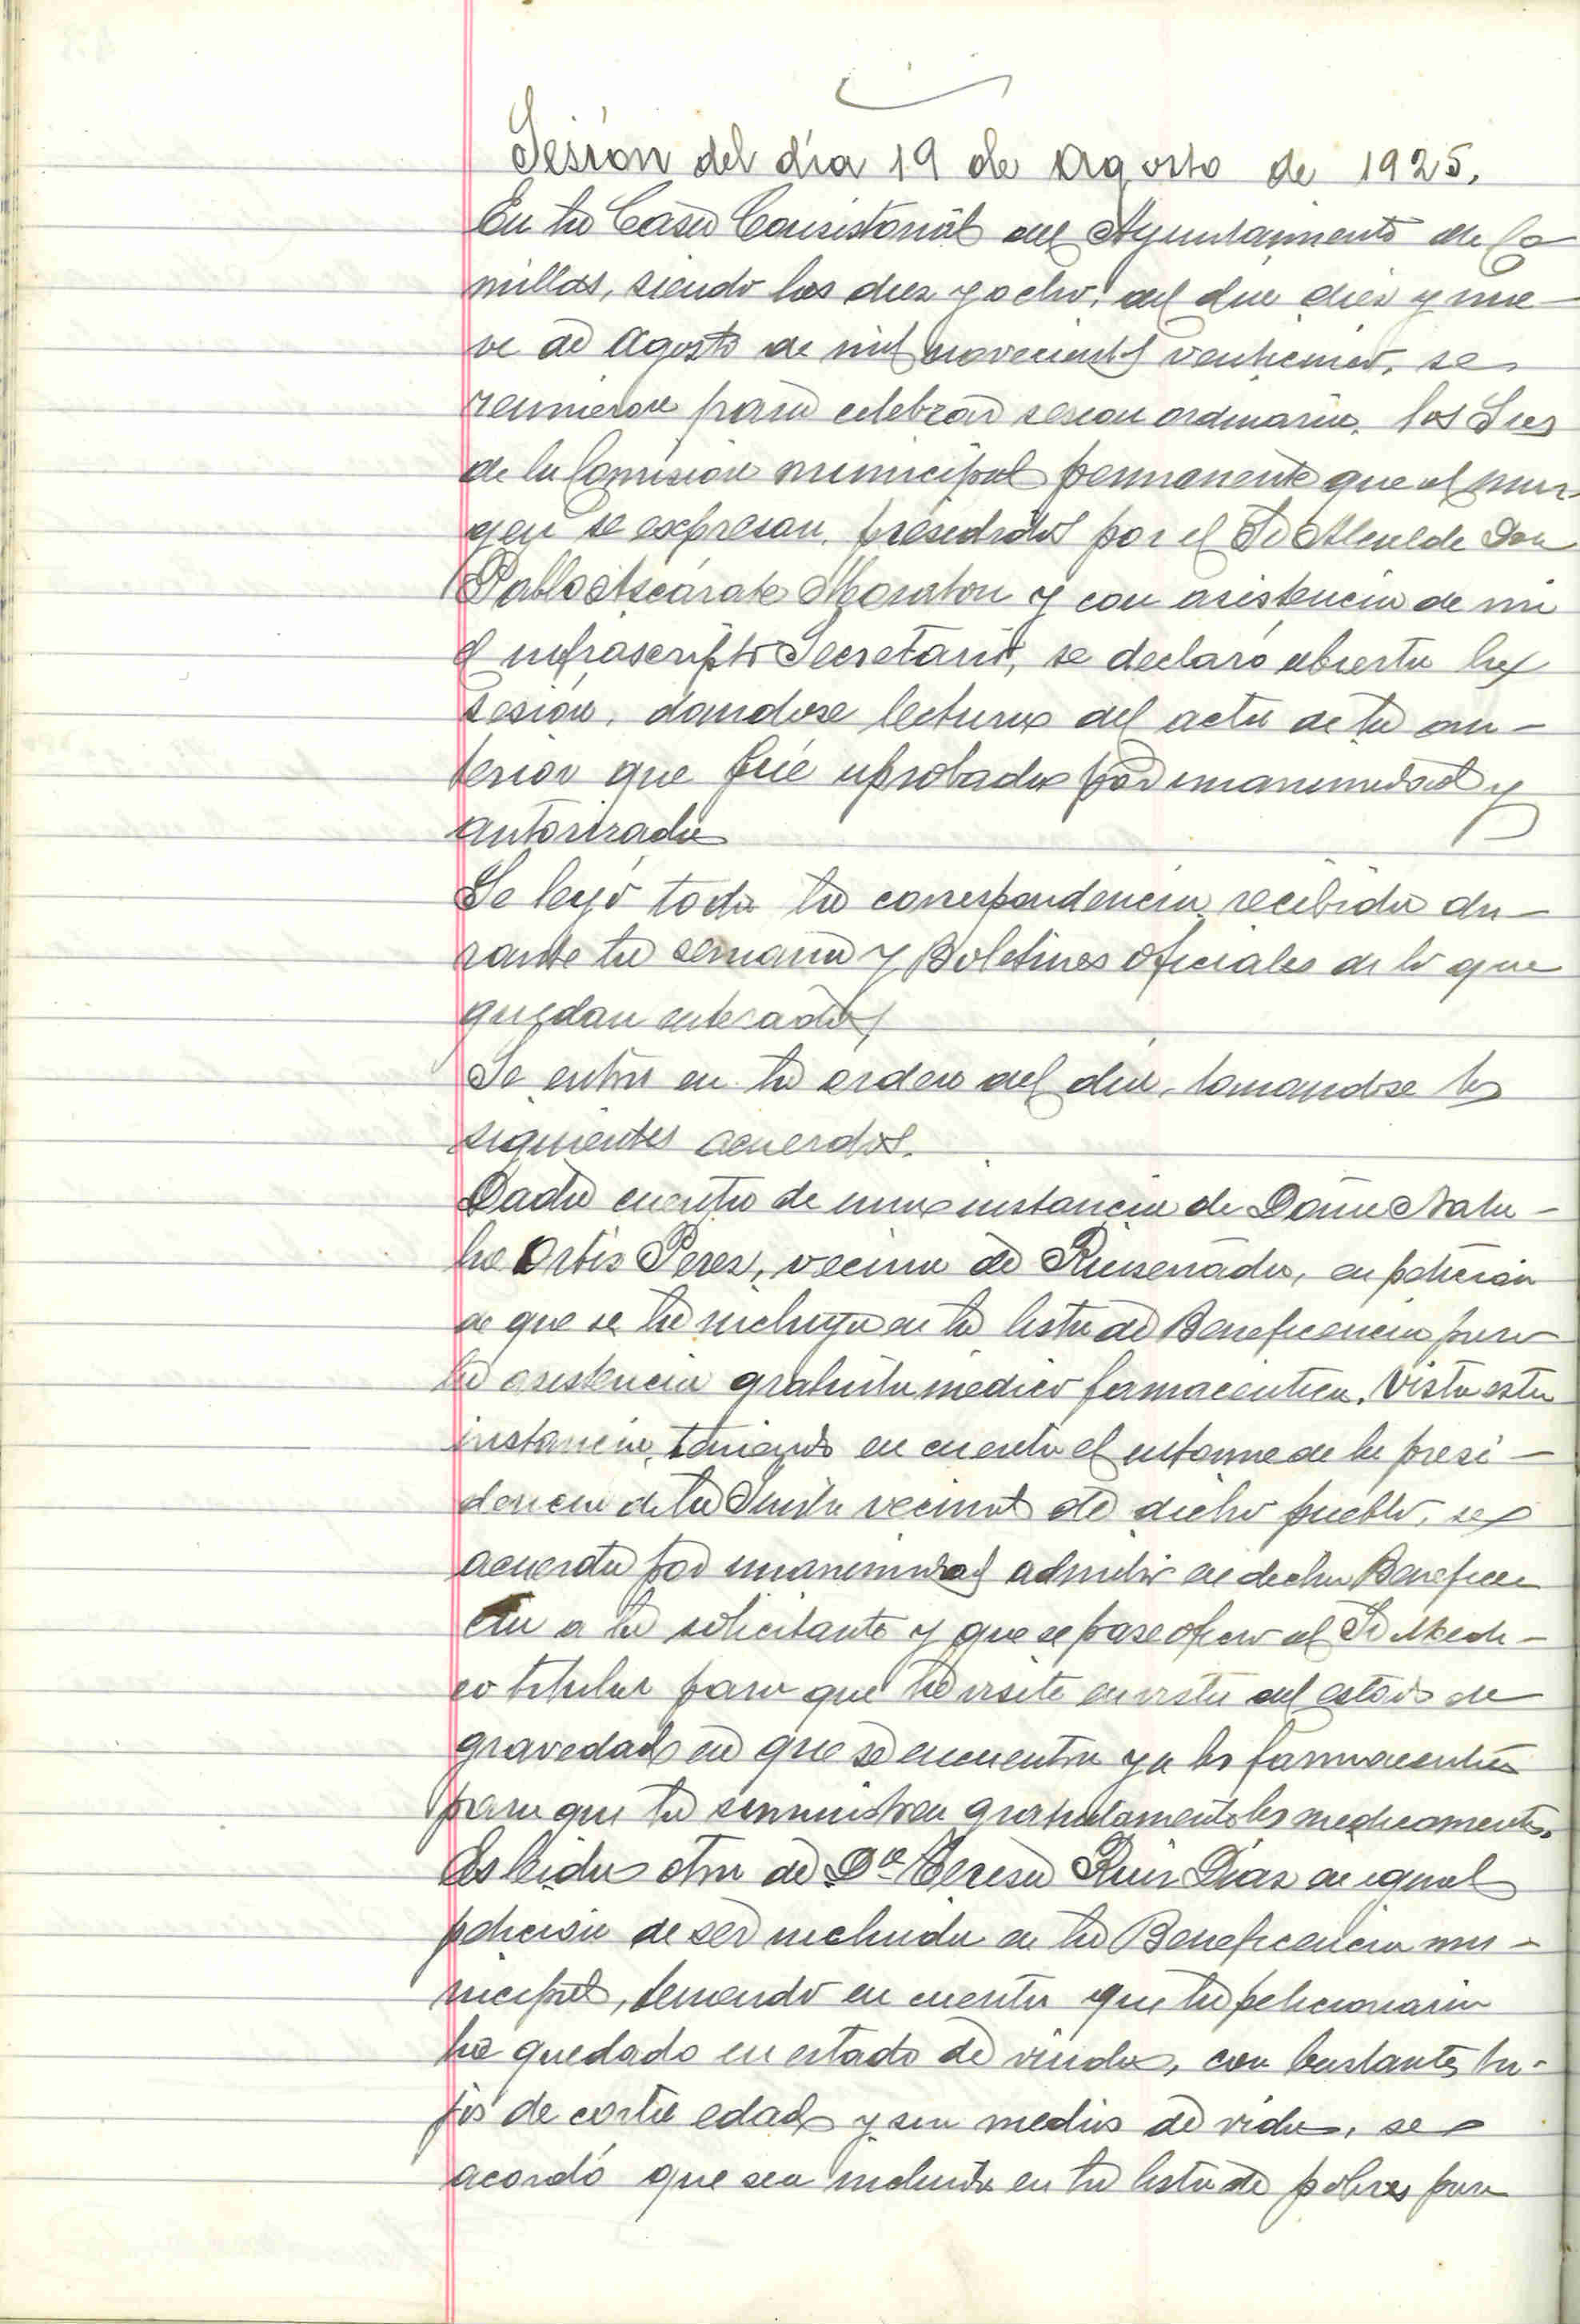 Sesión del día 19 de Agosto de 1925.
En la Casa Consistorial del Ayuntamiento de Co-
millas, siendo las diez y ocho, del dia diez y nue-
ve de Agosto de mil novecientos veinticinco, se
reunieron para celebrar sesion ordinaria, los Sres
de la Comision municipal permanente que al mar-
gen se expresan, presididos por el Sr Alcalde Don
Pablo Azcárate y con asistencia de mi
el infrascripto Secretario, se declaró abierta la
sesión, dandose lectura del acta de la an-
terior que fué aprobada por unanimidad y
autorizada
Se leyó toda la correspondencia recibida du-
rante la semana y Boletines oficiales de lo que
quedan enterados,
Se entra en la orden del dia, tomandose los
siguientes acuerdos.
Dada cuenta de una instancia de Doña Nata-
lia Ortiz Perez, vecina de Ruiseñada, en peticion
de que se la incluya en la lista de Beneficencia para
la asistencia gratuita médico farmaceutica. Vista esta
instancia, teniendo en cuenta el informe de la presi-
dencia de la Junta vecinal de dicho pueblo, se
acuerda por unanimidad admitir en dicha Beneficen
cia a la solicitante y que se pase oficio al Sr Medi-
co titular para que la visite en vista del estado de
gravedad en que se encuentra y a los farmaceuticos
para que la suministren gratuitamente los medicamentos.
Es leida otra de Dª Teresa Ruiz Diaz en igual
peticion de ser incluida en la Beneficencia mu-
nicipal, teniendo en cuenta que la peticionaria
ha quedado en estado de viuda, con bastantes hi-
jos de corta edad y sin medios de vida, se
acordó que sea incluida en la lista de pobres para